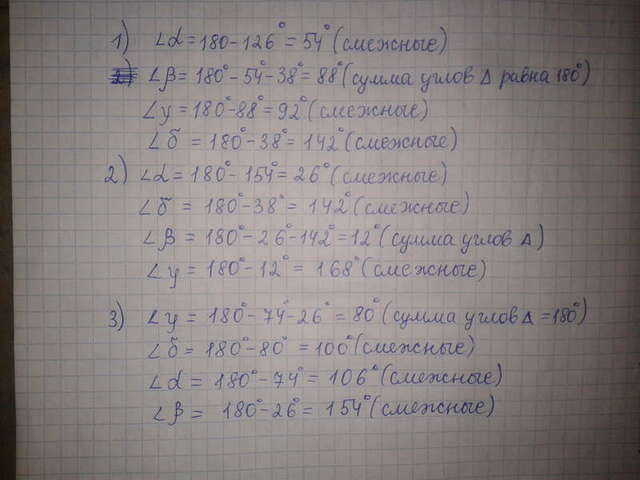 1) ∠α = 180 - 126° = 54° (смежные)
∠β = 180° - 54° - 38° = 88° (сумма углов Δ равна 180°)
∠у = 180° - 88° = 92° (смежные)
∠б = 180° - 38° = 142° (смежные)
2) ∠α = 180° - 154° = 26° (смежные)
∠б = 180° - 38° = 142° (смежные)
∠β = 180° - 26° - 142° = 12° (сумма углов Δ)
∠у = 180° - 12° = 168° (смежные)
3) ∠у = 180° - 74° - 26° = 80° (сумма углов Δ = 180°)
∠б = 180° - 80° = 100° (смежные)
∠α = 180° - 74° = 106° (смежные)
∠β = 180° - 26° = 154° (смежные)